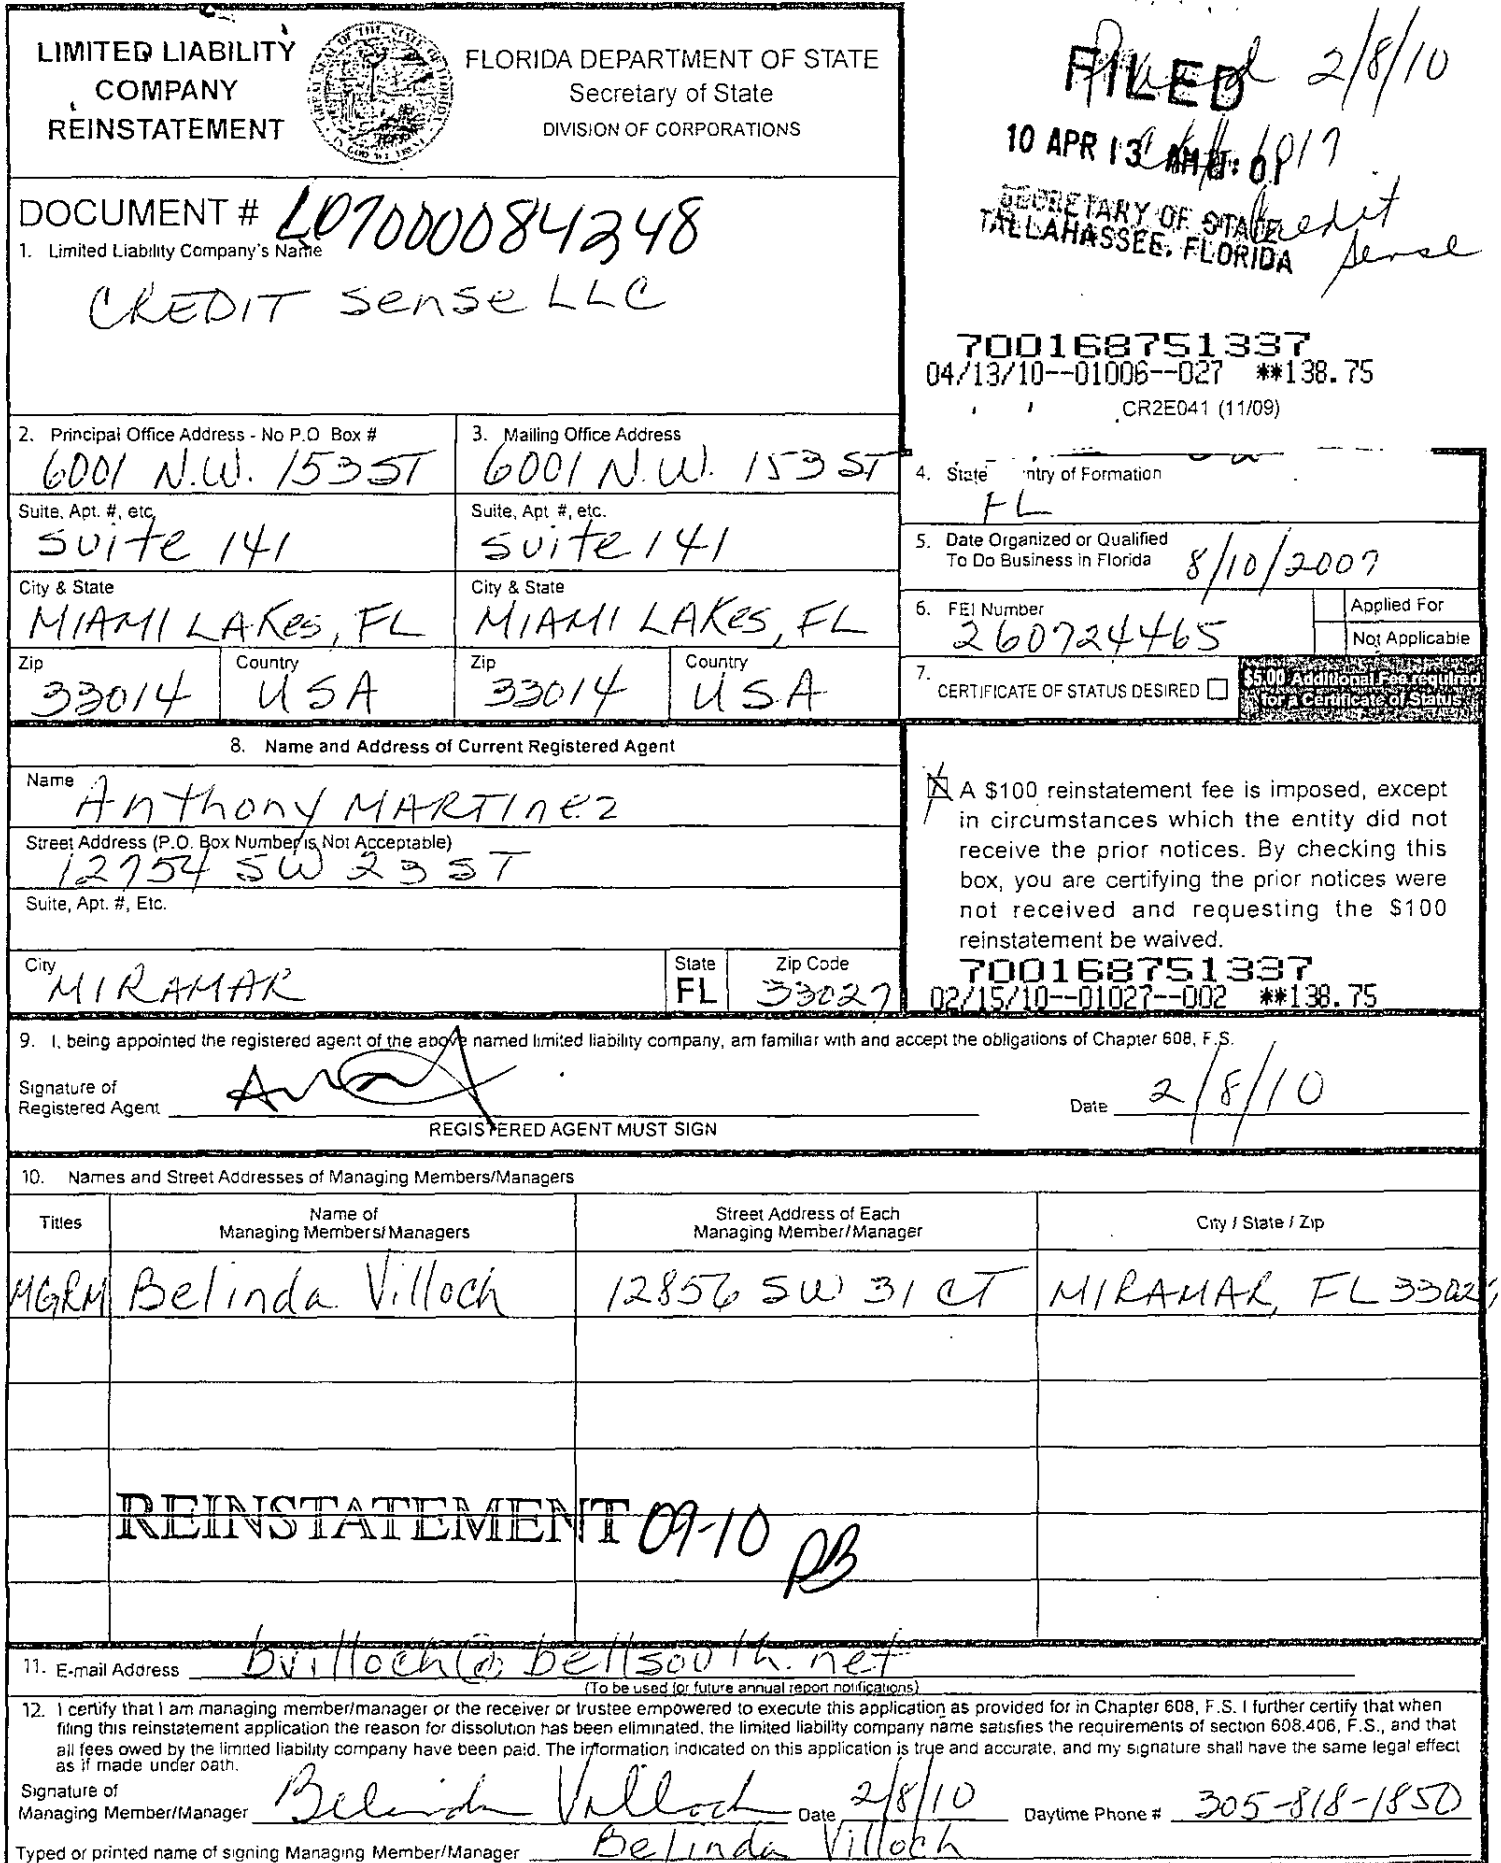 LIMITED LIABILITY
COMPANY
REINSTATEMENT
FLORIDA DEPARTMENT OF STATE
Secretary of State
DIVISION OF CORPORATIONS
FILED
2/8/10
10 APR 13 AM
SECRETARY OF STATE
TALLAHASSEE, FLORIDA
Credit
Sense
DOCUMENT # L07000084248
1. Limited Liability Company's Name
CREDIT Sense LLC
700168751337
04/13/10--01006--027 **138.75
CR2E041 (11/09)
2. Principal Office Address - No P.O Box #
6001 N.W. 153 ST
3. Mailing Office Address
6001 N.W. 153 ST
4. State ntry of Formation
FL
Suite, Apt. #, etc.
Suite 141
Suite, Apt #, etc.
Suite 141
5. Date Organized or Qualified
To Do Business in Florida 8/10/2007
City & State
MIAMI LAKes, FL
City & State
MIAMI LAKes, FL
6. FEI Number
260724465
Applied For
Not Applicable
Zip
33014
Country
USA
Zip
33014
Country
USA
7. CERTIFICATE OF STATUS DESIRED
$5.00 Additional Fee required
for a Certificate of Status
8. Name and Address of Current Registered Agent
Name
Anthony MARTInez
Street Address (P.O. Box Number is Not Acceptable)
12754 SW 23 ST
Suite, Apt. #, Etc.
City
MIRAMAR
State
FL
Zip Code
33027
A $100 reinstatement fee is imposed, except
in circumstances which the entity did not
receive the prior notices. By checking this
box, you are certifying the prior notices were
not received and requesting the $100
reinstatement be waived.
700168751337
02/15/10--01027--002 **138.75
9. I, being appointed the registered agent of the above named limited liability company, am familiar with and accept the obligations of Chapter 608, F.S.
Signature of
Registered Agent
Date 2/8/10
REGISTERED AGENT MUST SIGN
10. Names and Street Addresses of Managing Members/Managers
Titles
Name of
Managing Members/Managers
Street Address of Each
Managing Member/Manager
City / State / Zip
MGRM Belinda Villoch 12856 SW 31 CT MIRAMAR, FL 33027
REINSTATEMENT 09-10
11. E-mail Address bvilloch@bellsouth.net
(To be used for future annual report notifications)
12. I certify that I am managing member/manager or the receiver or trustee empowered to execute this application as provided for in Chapter 608, F.S. I further certify that when
filing this reinstatement application the reason for dissolution has been eliminated, the limited liability company name satisfies the requirements of section 608.406, F.S., and that
all fees owed by the limited liability company have been paid. The information indicated on this application is true and accurate, and my signature shall have the same legal effect
as if made under oath.
Signature of
Managing Member/Manager Belinda Villoch Date 2/8/10 Daytime Phone # 305-818-1850
Typed or printed name of signing Managing Member/Manager Belinda Villoch